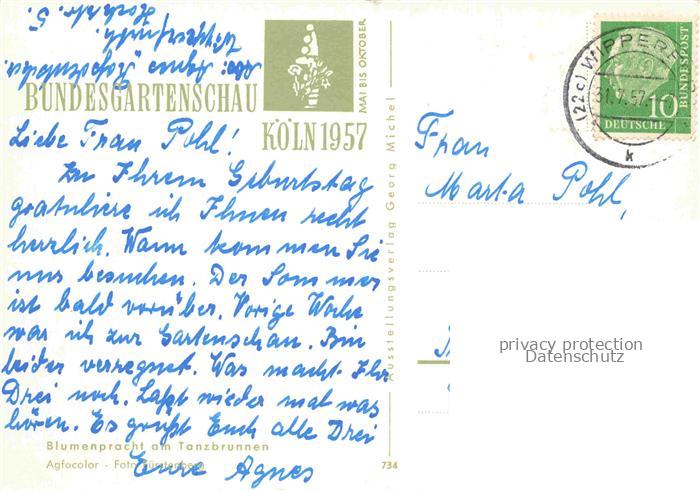 BUNDESGARTENSCHAU
KÖLN 1957
MAI BIS OKTOBER
Liebe Frau Pohl!
Zu Ihrem Geburtstag
gratuliere ich Ihnen recht
herzlich. Wann kommen Sie
uns besuchen. Der Sommer
ist bald vorüber. Vorige Woche
war ich zur Gartenschau. Bin
leider verregnet. Was macht Ihr
Drei noch. Laßt wieder mal was
hören. Es grüßt Euch alle Drei
Eure Agnes
Blumenpracht am Tanzbrunnen
Agfacolor - Foto Fürstenberg
734
Ausstellungsverlag Georg Michel
Frau
Marta Pohl,
(22c) WIPPERF
31.7.57
k
10
DEUTSCHE
BUNDESPOST
privacy protection
Datenschutz